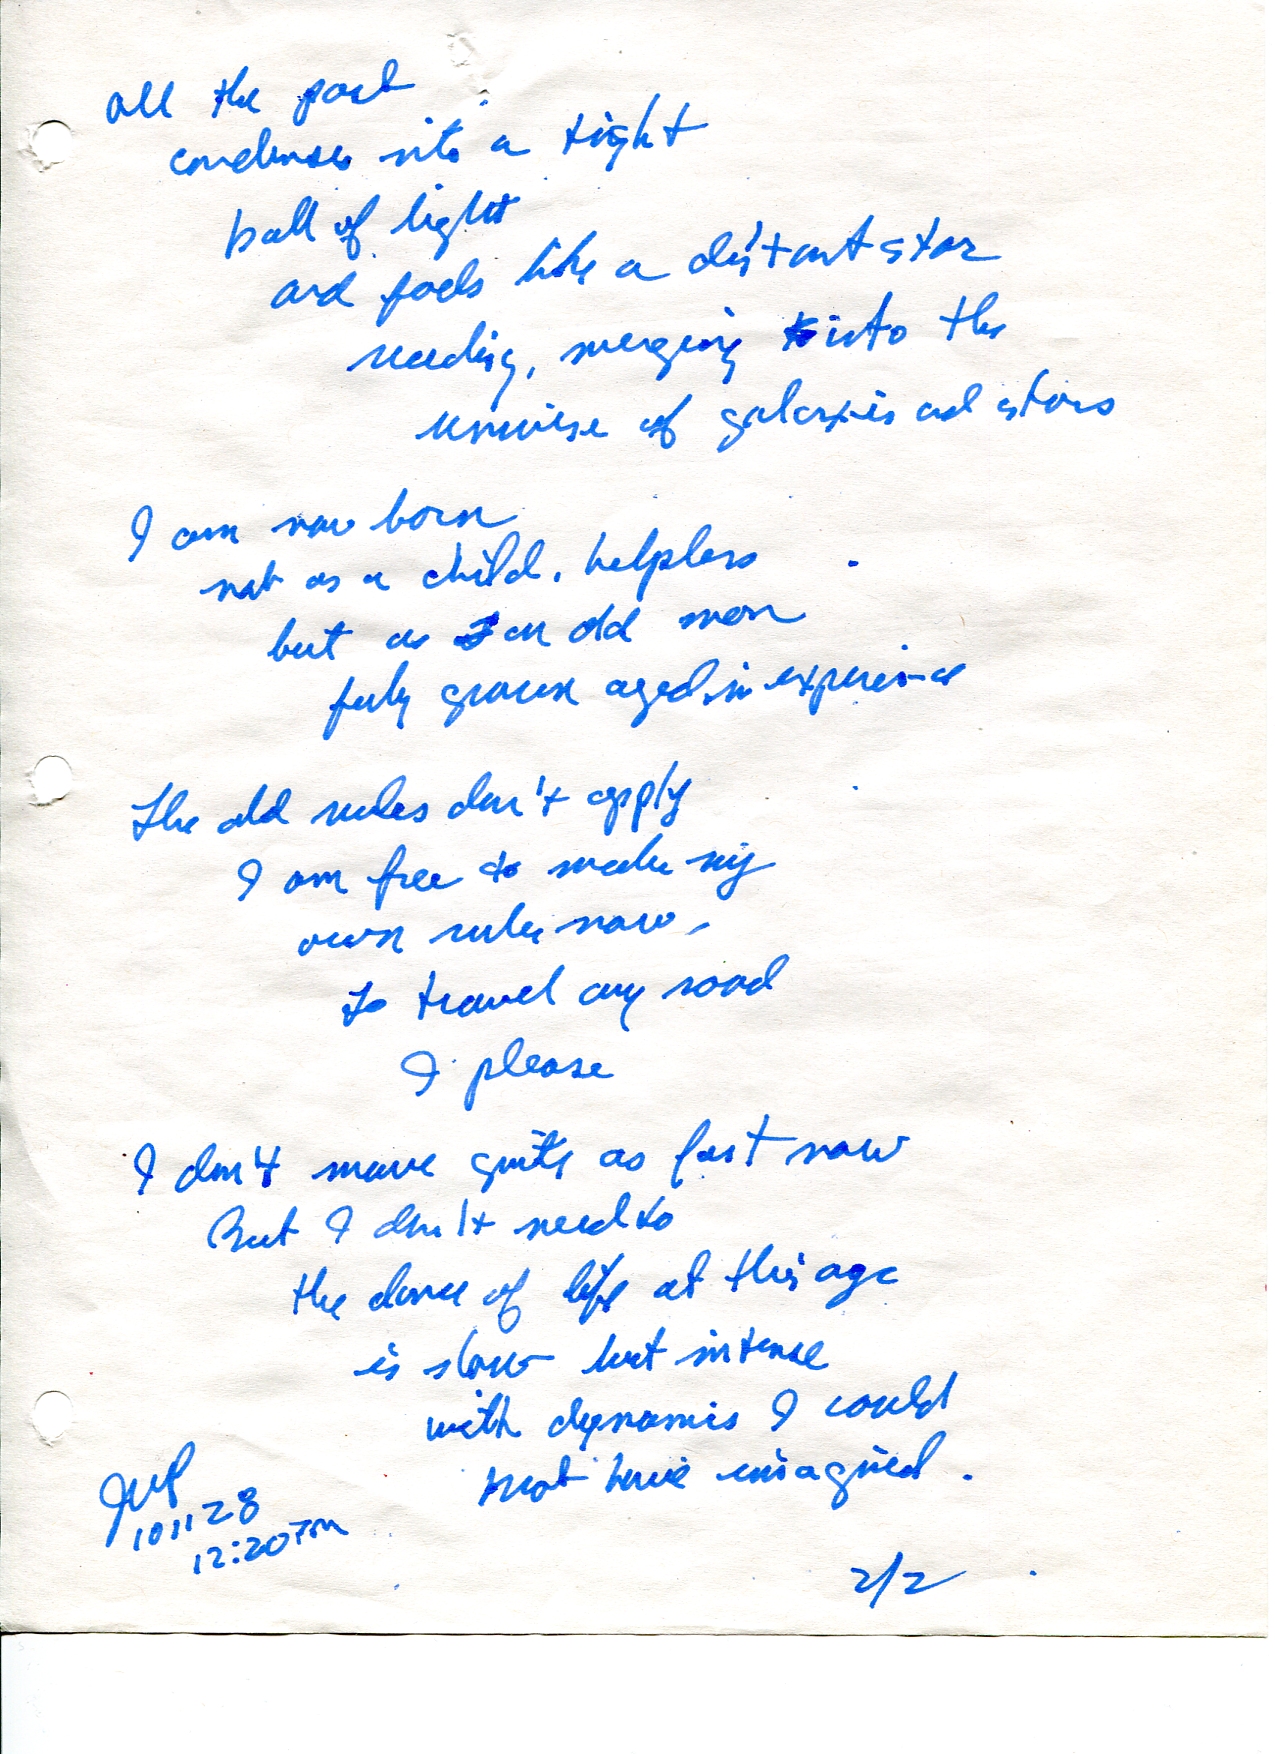 all the past
condenses into a tight
ball of light
and fades like a distant star
receding, merging into the
universe of galaxies and stars
I am now born
not as a child, helpless
but as an old man
fully grown aged in experience
The old rules don't apply
I am free to make my
own rules now,
to travel any road
I please
I don't move quite as fast now
But I don't need to
the dance of life at this age
is slow but intense
with dynamics I could
not have imagined.
101128
12:20
2/2